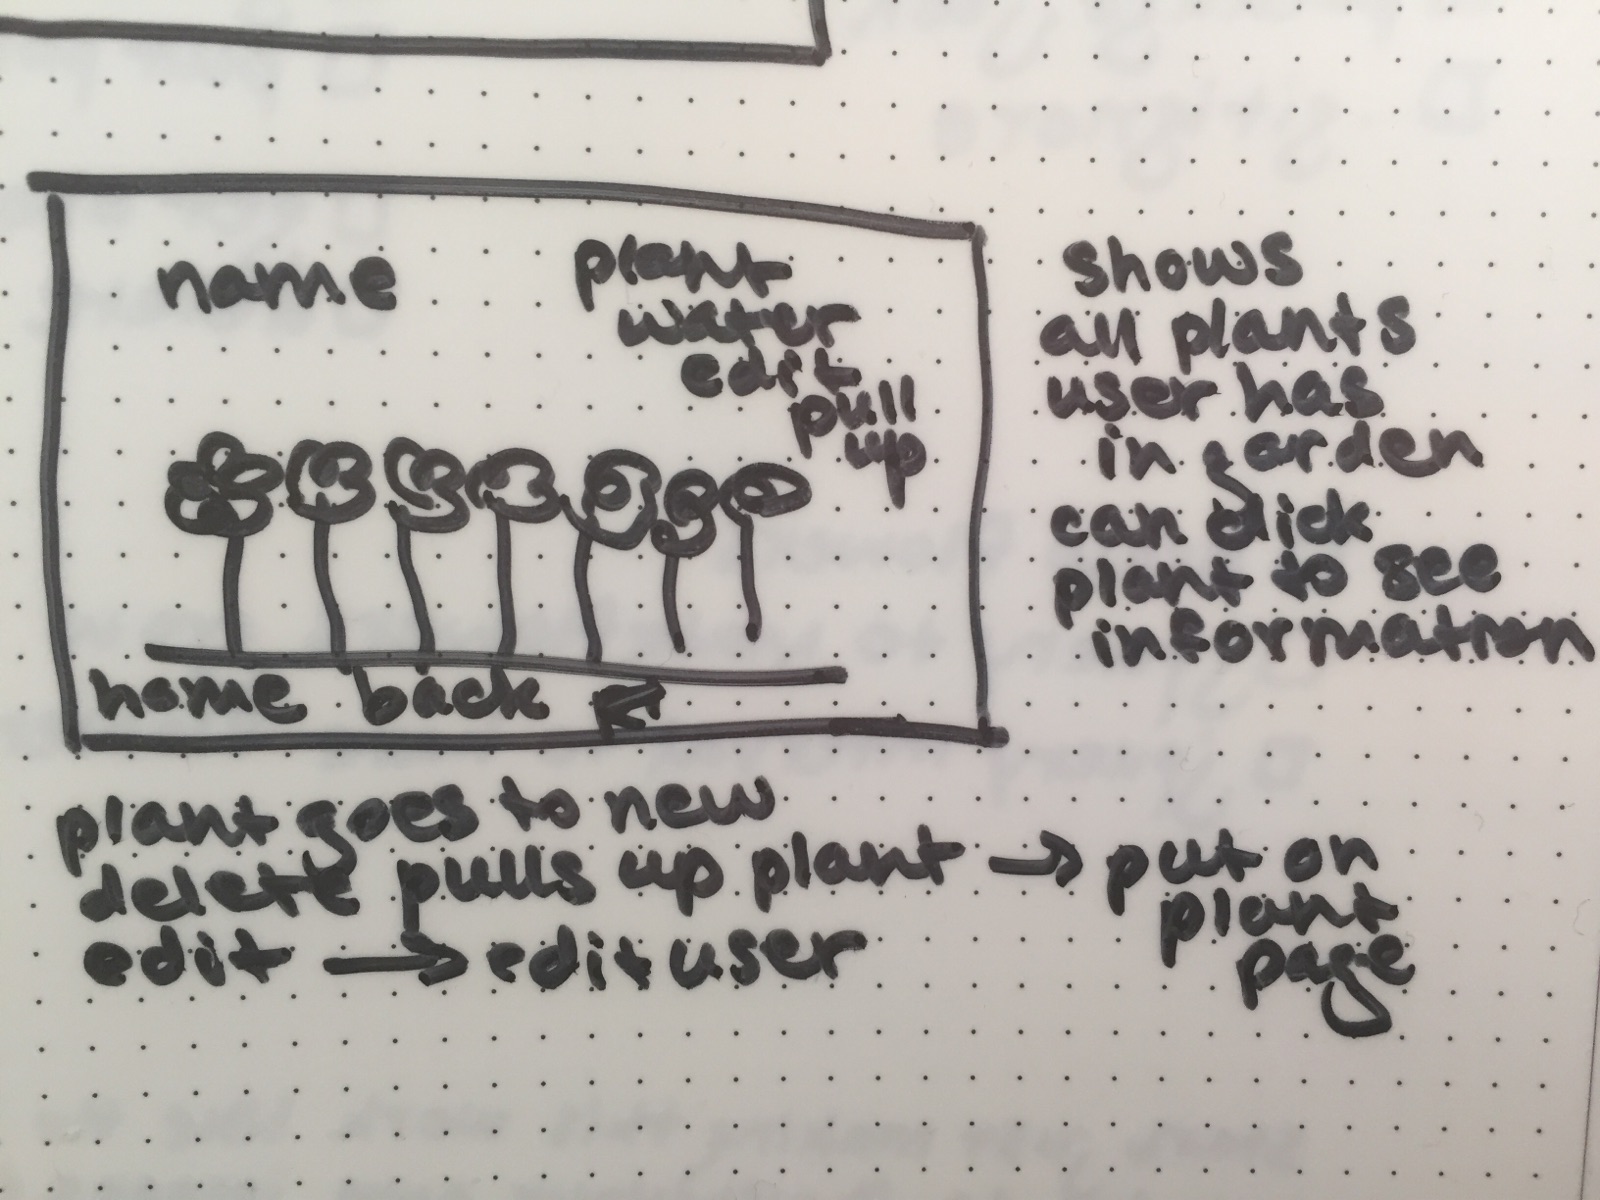 name
plant
water
edit
pull
up
home back
shows
all plants
user has
in garden
can click
plant to see
information
plant goes to new
delete pulls up plant → put on
plant
page
edit → edit user